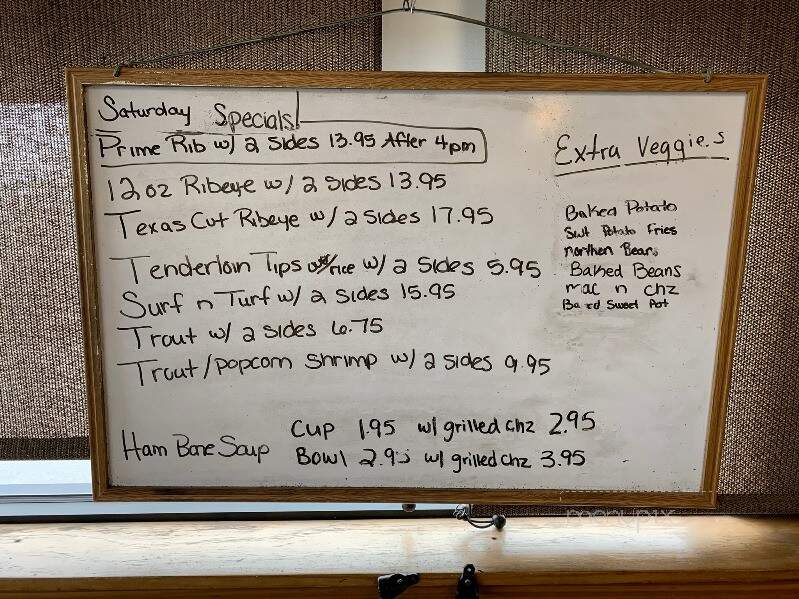 Saturday Specials!
Prime Rib w/ 2 Sides 13.95 After 4pm
12 oz Ribeye w/ 2 Sides 13.95
Texas Cut Ribeye w/ 2 Sides 17.95
Tenderloin Tips o/rice w/ 2 Sides 5.95
Surf n Turf w/ 2 Sides 15.95
Trout w/ 2 sides 6.75
Trout/popcorn shrimp w/ 2 sides 9.95
Ham Bone Soup
Cup 1.95 w/ grilled chz 2.95
Bowl 2.95 w/ grilled chz 3.95
Extra Veggies
Baked Potato
Swt Potato Fries
northen Beans
Baked Beans
mac n chz
Baked Sweet Pot
menupix